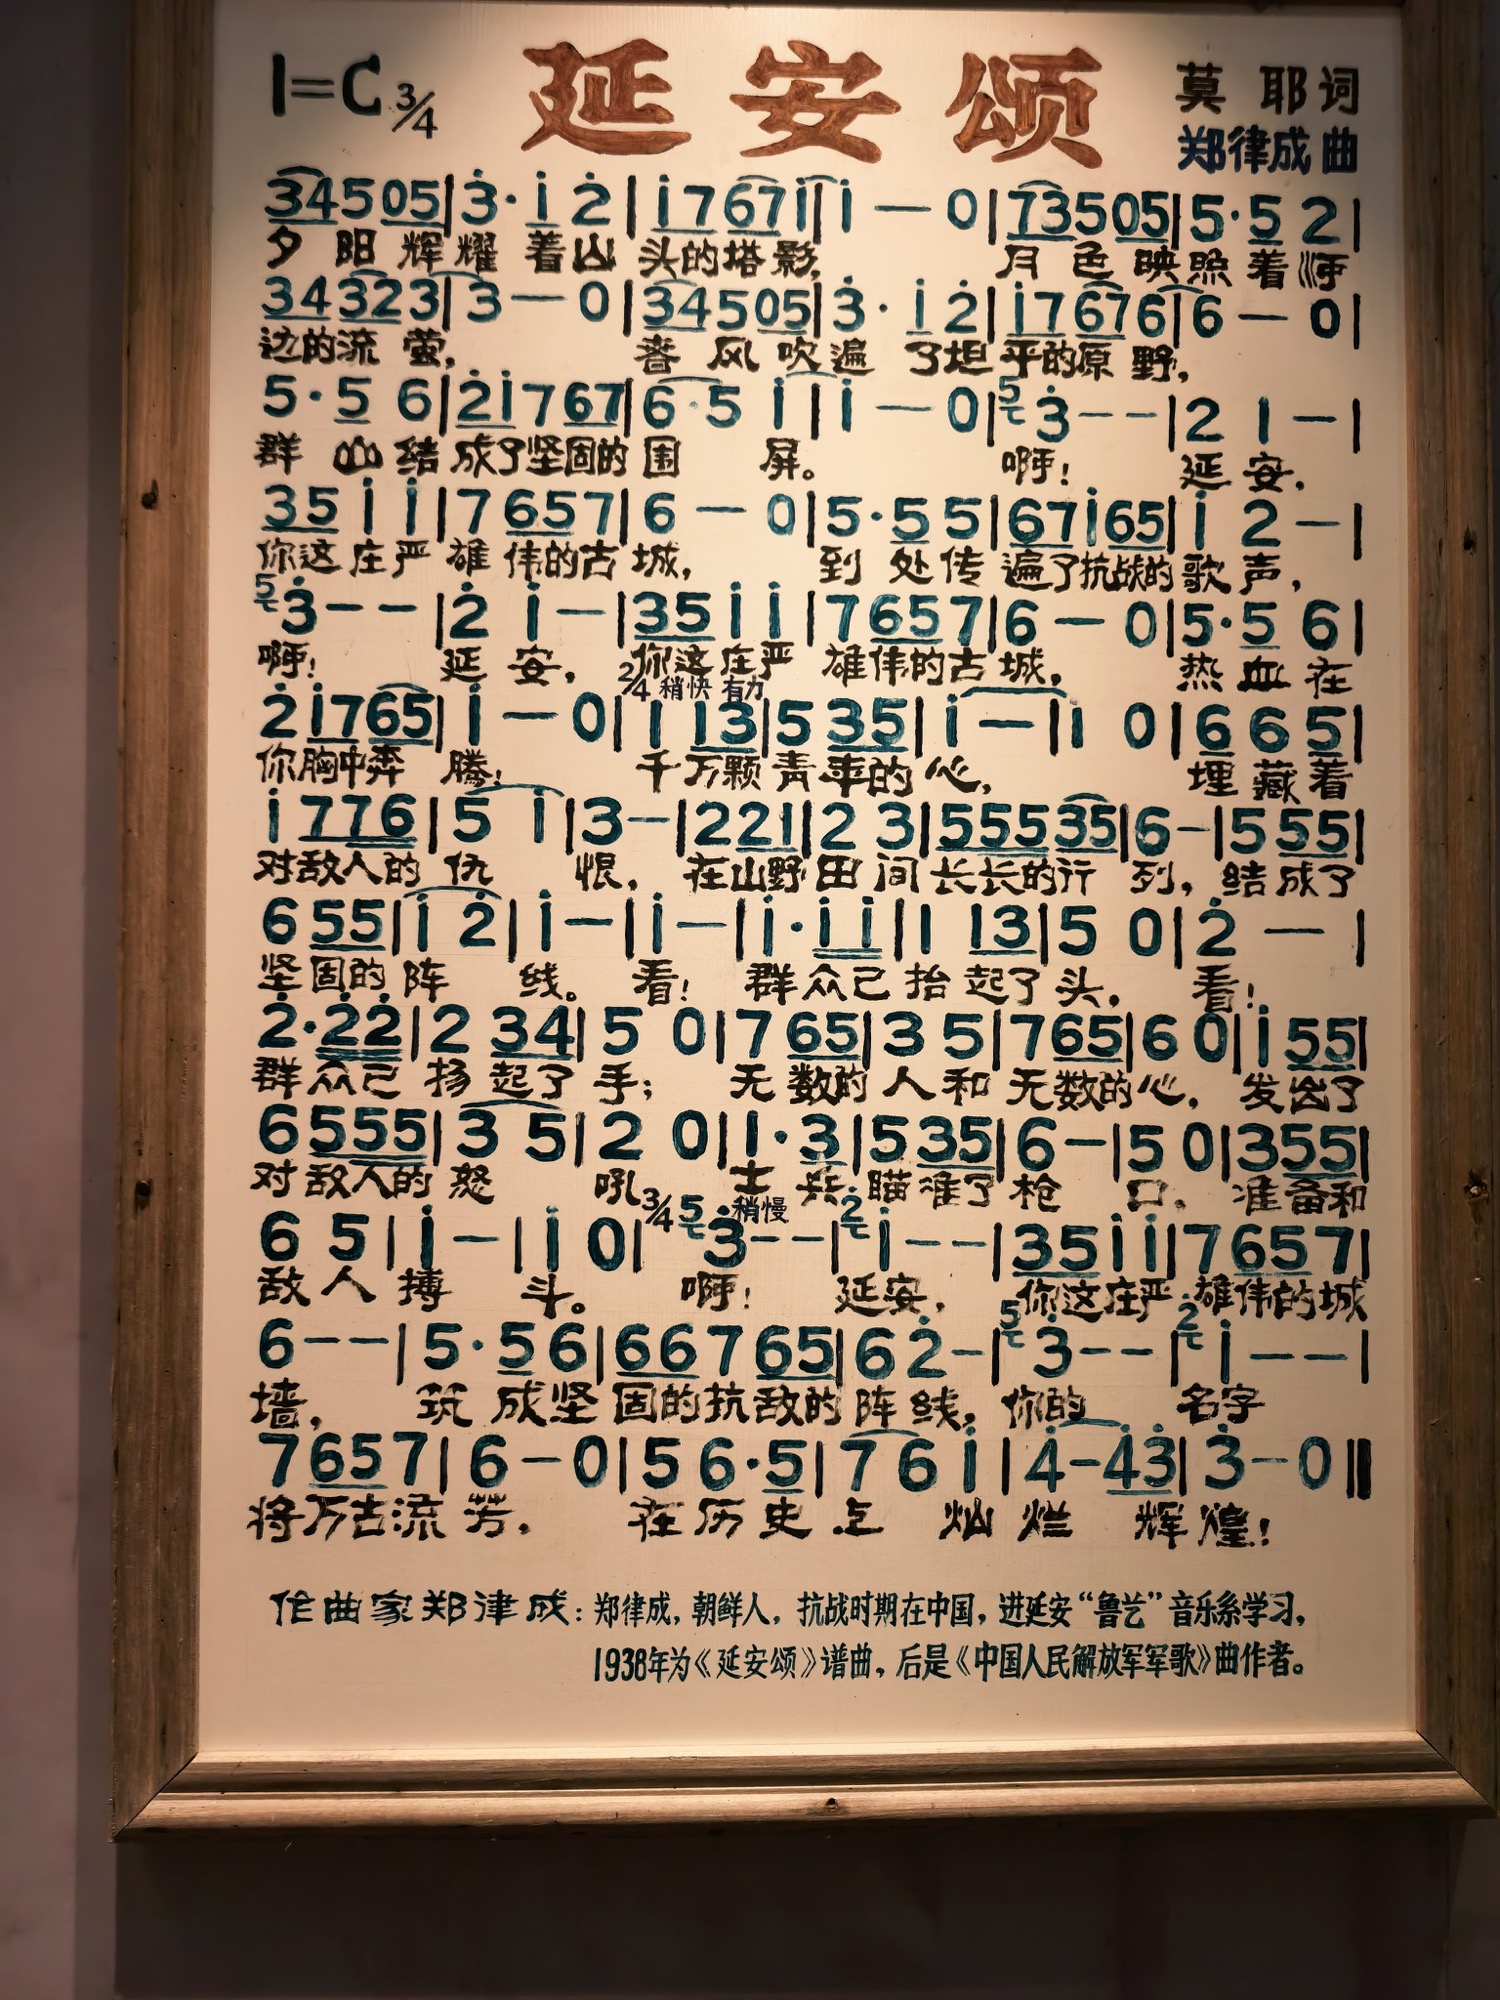 1=C 3/4 延安颂 莫耶词
郑律成曲
34505|3·1 2|17671|1—0|73505|5·5 2|
夕阳辉耀着山头的塔影，月色映照着河
34323|3—0|34505|3·1 2|17676|6—0|
边的流萤，春风吹遍了坦平的原野，
5·5 6|21767|6·5 1|1—0|5 3--|2 1—|
群山结成了坚固的围屏。啊！延安，
35 1 1|7 657|6—0|5·5 5|67165|1 2—|
你这庄严雄伟的古城，到处传遍了抗战的歌声，
5 3--|2 1—|35 1 1|7657|6—0|5·5 6|
啊！延安，你这庄严雄伟的古城，热血在
2/4 稍快 有力
21765|1—0|1 13|5 35|1—|1 0|6 6 5|
你胸中奔腾；千万颗青年的心，埋藏着
1 776|5 1|3—|2 21|2 3|55535|6—|5 55|
对敌人的仇恨，在山野田间长长的行列，结成了
6 55|1 2|1—|1—|1·11|1 13|5 0|2—|
坚固的阵线。看！群众已抬起了头，看！
2·22|2 34|5 0|7 65|3 5|765|6 0|1 55|
群众已扬起了手；无数的人和无数的心，发出了
6555|3 5|2 0|1·3|5 35|6—|5 0|355|
对敌人的怒吼 士兵瞄准了枪口，准备和
3/4 稍慢
6 5|1—|1 0|5 3--|2 1--|35 1 1|7657|
敌人搏斗。啊！延安，你这庄严雄伟的城
6--|5·5 6|66765|6 2-|5 3--|2 1--|
墙，筑成坚固的抗敌的阵线，你的名字
7657|6—0|5 6·5|7 6 1|4-43|3—0‖
将万古流芳，在历史上灿烂辉煌！
作曲家郑律成：郑律成，朝鲜人，抗战时期在中国，进延安“鲁艺”音乐系学习，
1938年为《延安颂》谱曲，后是《中国人民解放军军歌》曲作者。